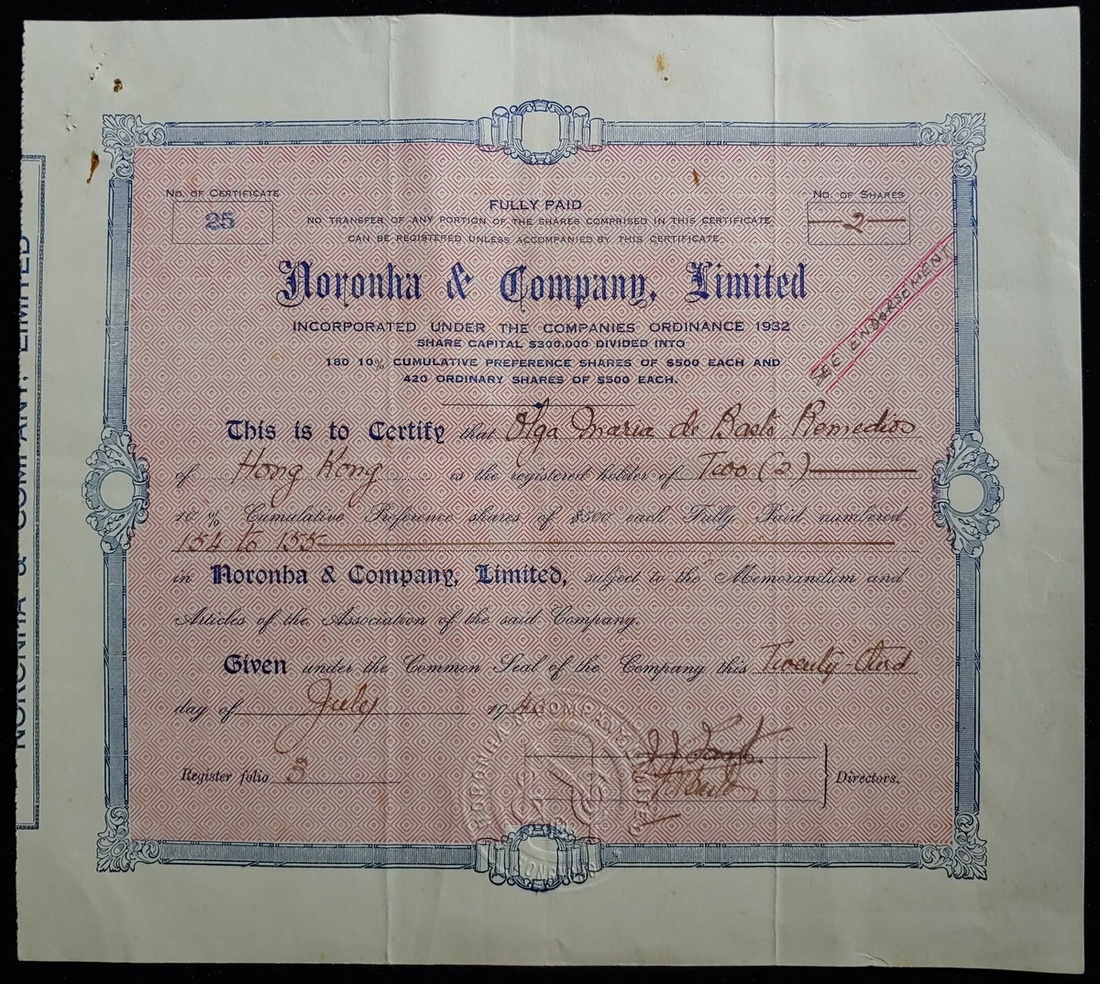 No. of Certificate
25
No. of Shares
2
FULLY PAID
NO TRANSFER OF ANY PORTION OF THE SHARES COMPRISED IN THIS CERTIFICATE
CAN BE REGISTERED UNLESS ACCOMPANIED BY THIS CERTIFICATE.
Noronha & Company, Limited
INCORPORATED UNDER THE COMPANIES ORDINANCE 1932
SHARE CAPITAL $300,000 DIVIDED INTO
180 10% CUMULATIVE PREFERENCE SHARES OF $500 EACH AND
420 ORDINARY SHARES OF $500 EACH.
SEE ENDORSEMENT
This is to Certify that Olga Maria de Basto Remedios
of Hong Kong is the registered holder of Two (2)
10% Cumulative Preference shares of $500 each Fully Paid numbered
154 to 155
in Noronha & Company, Limited, subject to the Memorandum and
Articles of the Association of the said Company.
Given under the Common Seal of the Company this Twenty-third
day of July 1940
Register folio 3
Directors.
NORONHA & COMPANY, LIMITED
NORONHA & COMPANY, LIMITED